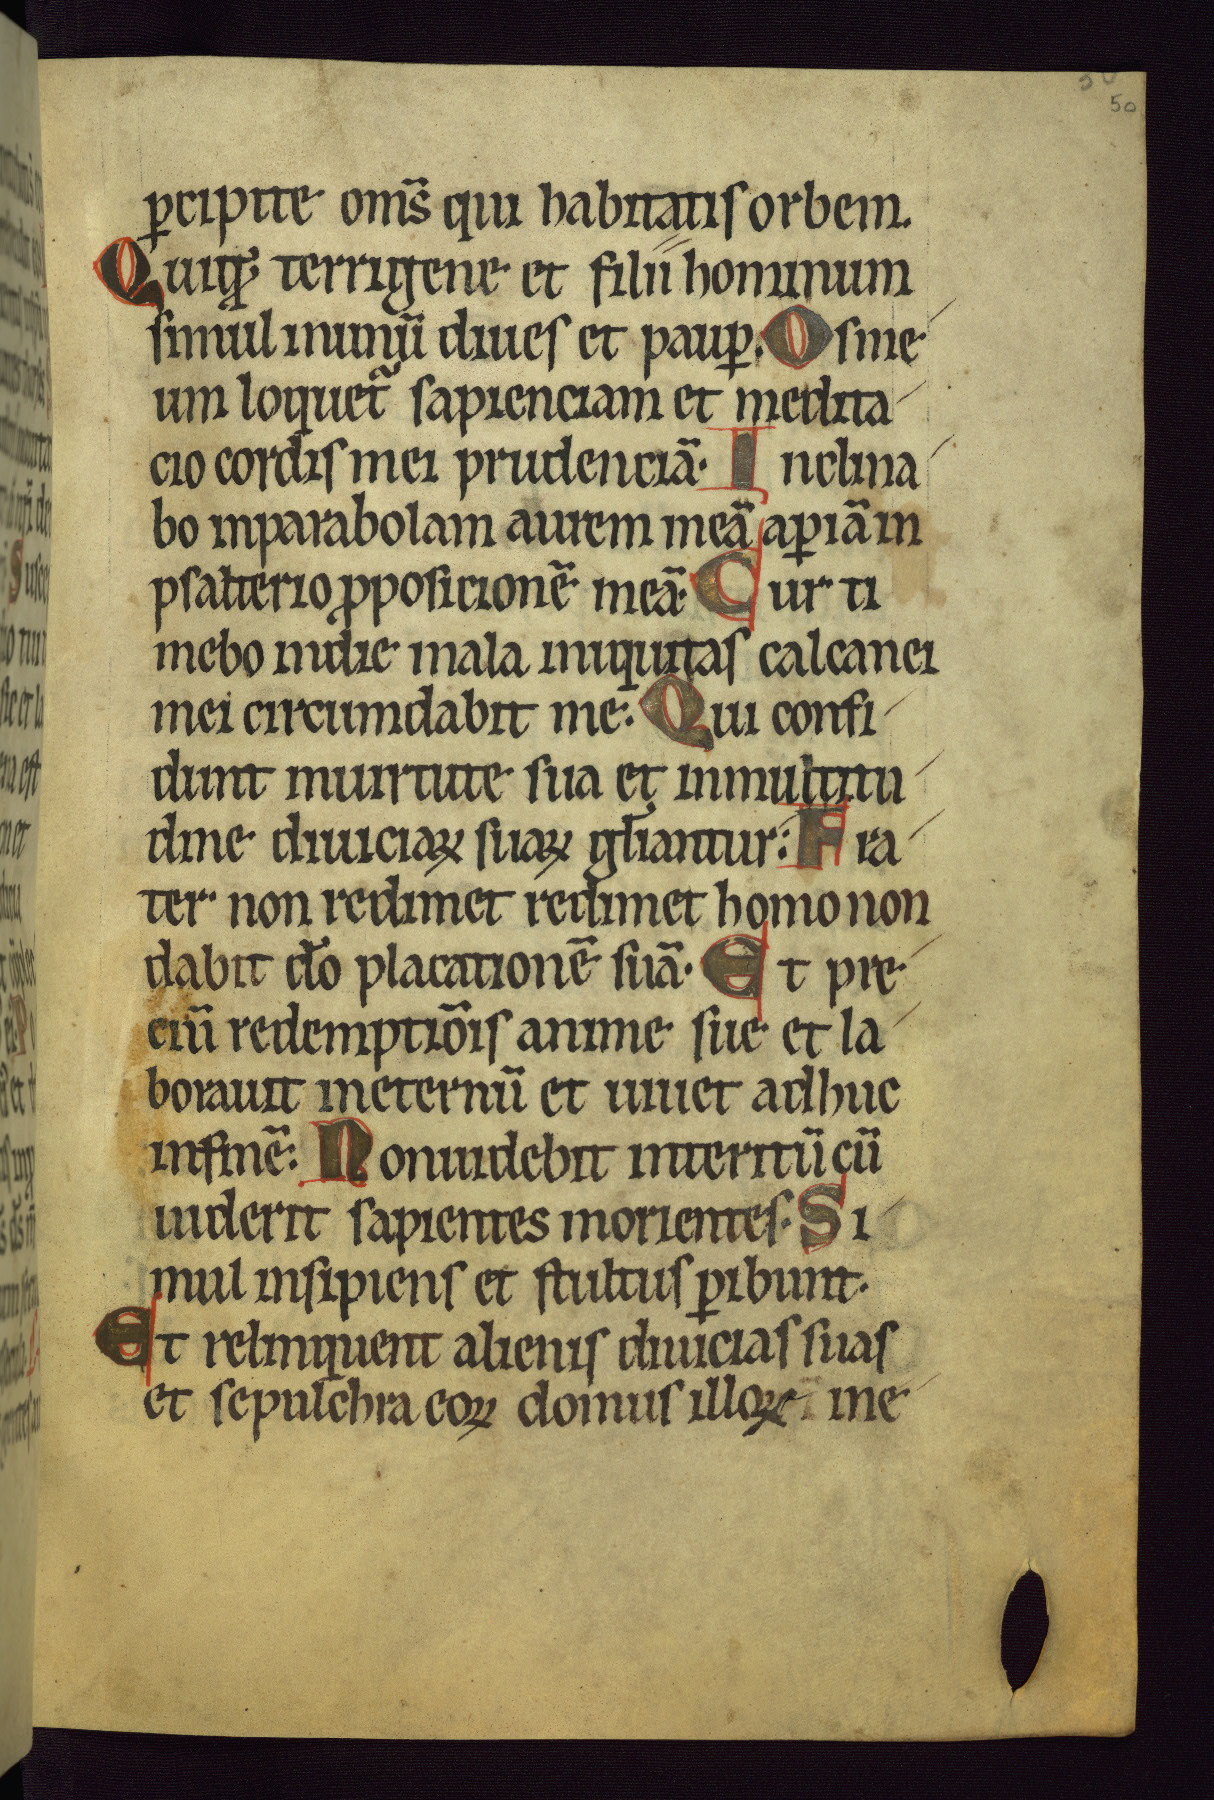 50
ꝑcipite om̅s qui habitatis orbem.
Quiqꝫ terrigene et filii hominum
simul inunū diues et pauꝑ. Os me
um loquet᷑ sapienciam et medita
cio cordis mei prudenciā. Inclina
bo inparabolam aurem meā aꝑiā in
psalterio ꝓposicionē meā. Cur ti
mebo indie mala iniquitas calcanei
mei circumdabit me. Qui confi
dunt inuirtute sua et inmultitu
dine diuiciaꝝ suaꝝ gl̅iantur: Fra
ter non redimet redimet homo non
dabit d̅o placationē suā. Et pre
ciū redemptio̅is anime sue et la
borauit ineternū et uiuet adhuc
infinē: Non uidebit interitū cū
uiderit sapientes morientes. Si
mul insipiens et stultus ꝑibunt.
Et relinquent alienis diuicias suas
et sepulchra eoꝝ domus illoꝝ ine